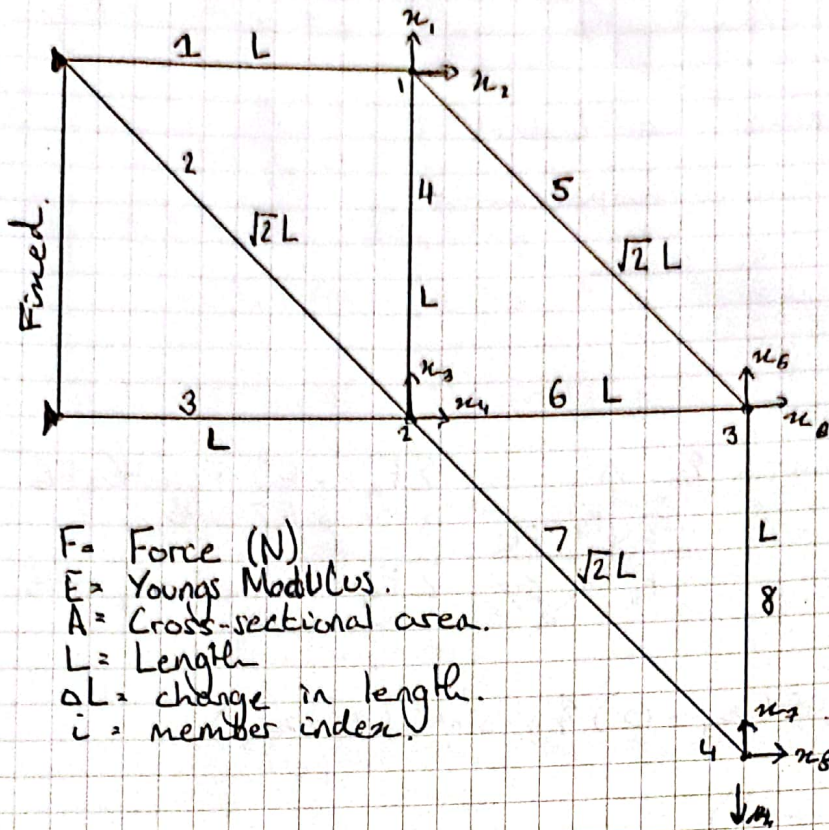 x₁
1 L
1
x₂
2
4
5
√2 L
√2 L
Fixed.
L
x₃
x₅
3
x₄
6 L
L
2
3
x₆
F = Force (N)
7
E = Youngs Modulus.
√2 L
L
A = Cross-sectional area.
8
L = Length
ΔL = change in length.
i = member index.
x₇
4
x₈